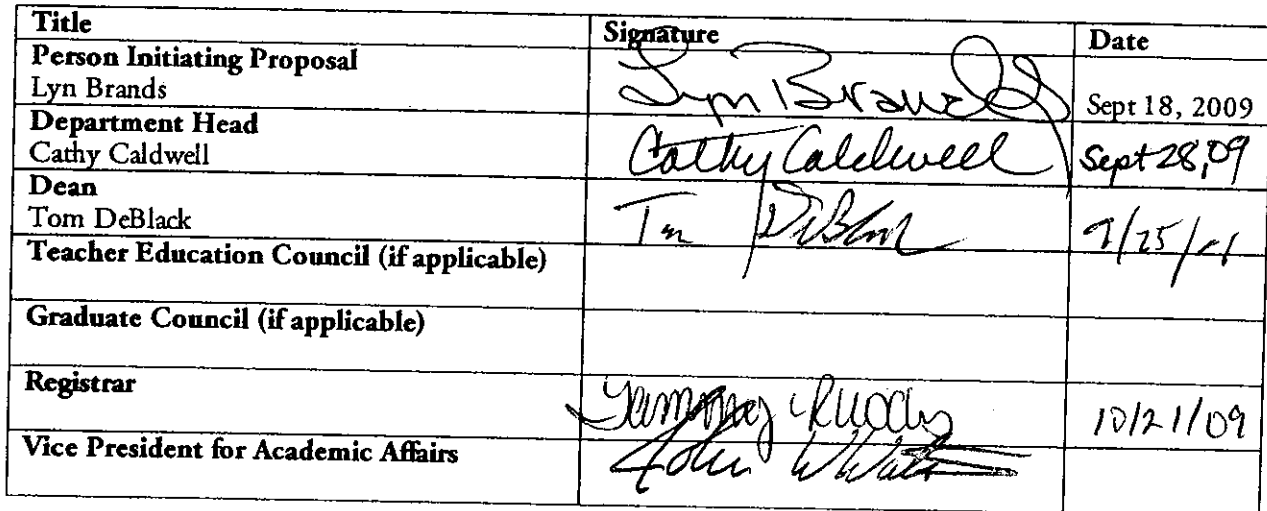 Title Signature Date
Person Initiating Proposal
Lyn Brands Lyn Brands Sept 18, 2009
Department Head
Cathy Caldwell Cathy Caldwell Sept 28, 09
Dean
Tom DeBlack Tom DeBlack
Teacher Education Council (if applicable)
Graduate Council (if applicable)
Registrar
Tammy Rhodes 10/21/09
Vice President for Academic Affairs
John W Watson